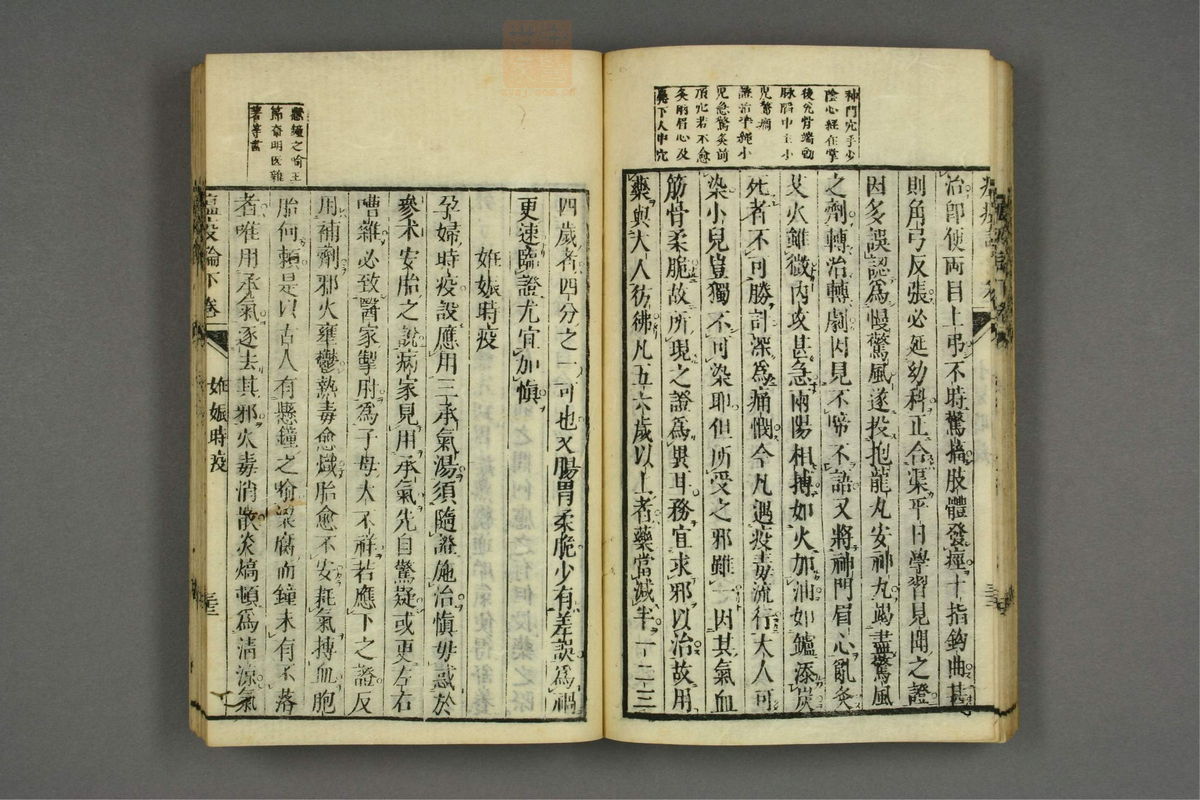 神門穴手少
陰心經在掌
後兌骨端動
脉陷中主小
兒驚癇
譫治準繩小
兒急驚灸前
頂穴若不愈
灸兩眉心及
鼻下人中穴
治卽便両目上弔不時驚搐肢體發痙十指鈎曲甚
則角弓反張必延幼科正合渠平日學習見聞之證
因多誤認爲慢驚風遂投抱龍丸安神丸竭盡驚風
之劑轉治轉劇因見不啼不語又將神門眉心亂灸
艾火雖微内攻甚急兩陽相搏如火加油如鑪添炭
死者不可勝計深爲痛憫今凡遇疫毒流行大人可
染小兒豈獨不可染耶但所受之邪雖一因其氣血
筋骨柔脆故所現之證爲異耳務宜求邪以治故用
藥與大人彷彿凡五六歲以上者藥當減半二三
四歲者四分之一可也又腸胃柔脆少有差誤爲禍
更速臨證尤宜加愼
妊娠時疫
孕婦時疫設應用三承氣湯須隨證施治愼毋惑於
參朮安胎之說病家見用承氣先自驚疑或更左右
嘈雜必致醫家掣肘爲子母大不祥若應下之證反
用補劑邪火壅鬱熱毒愈熾胎愈不安耗氣搏血胞
胎何頼是以古人有懸鐘之喻梁腐而鐘未有不落
者唯用承氣逐去其邪火毒消散炎熇頓爲清凉氣
懸鐘之喻王
節齋明医雜
著等書
瘟疫論下卷
妊娠時疫